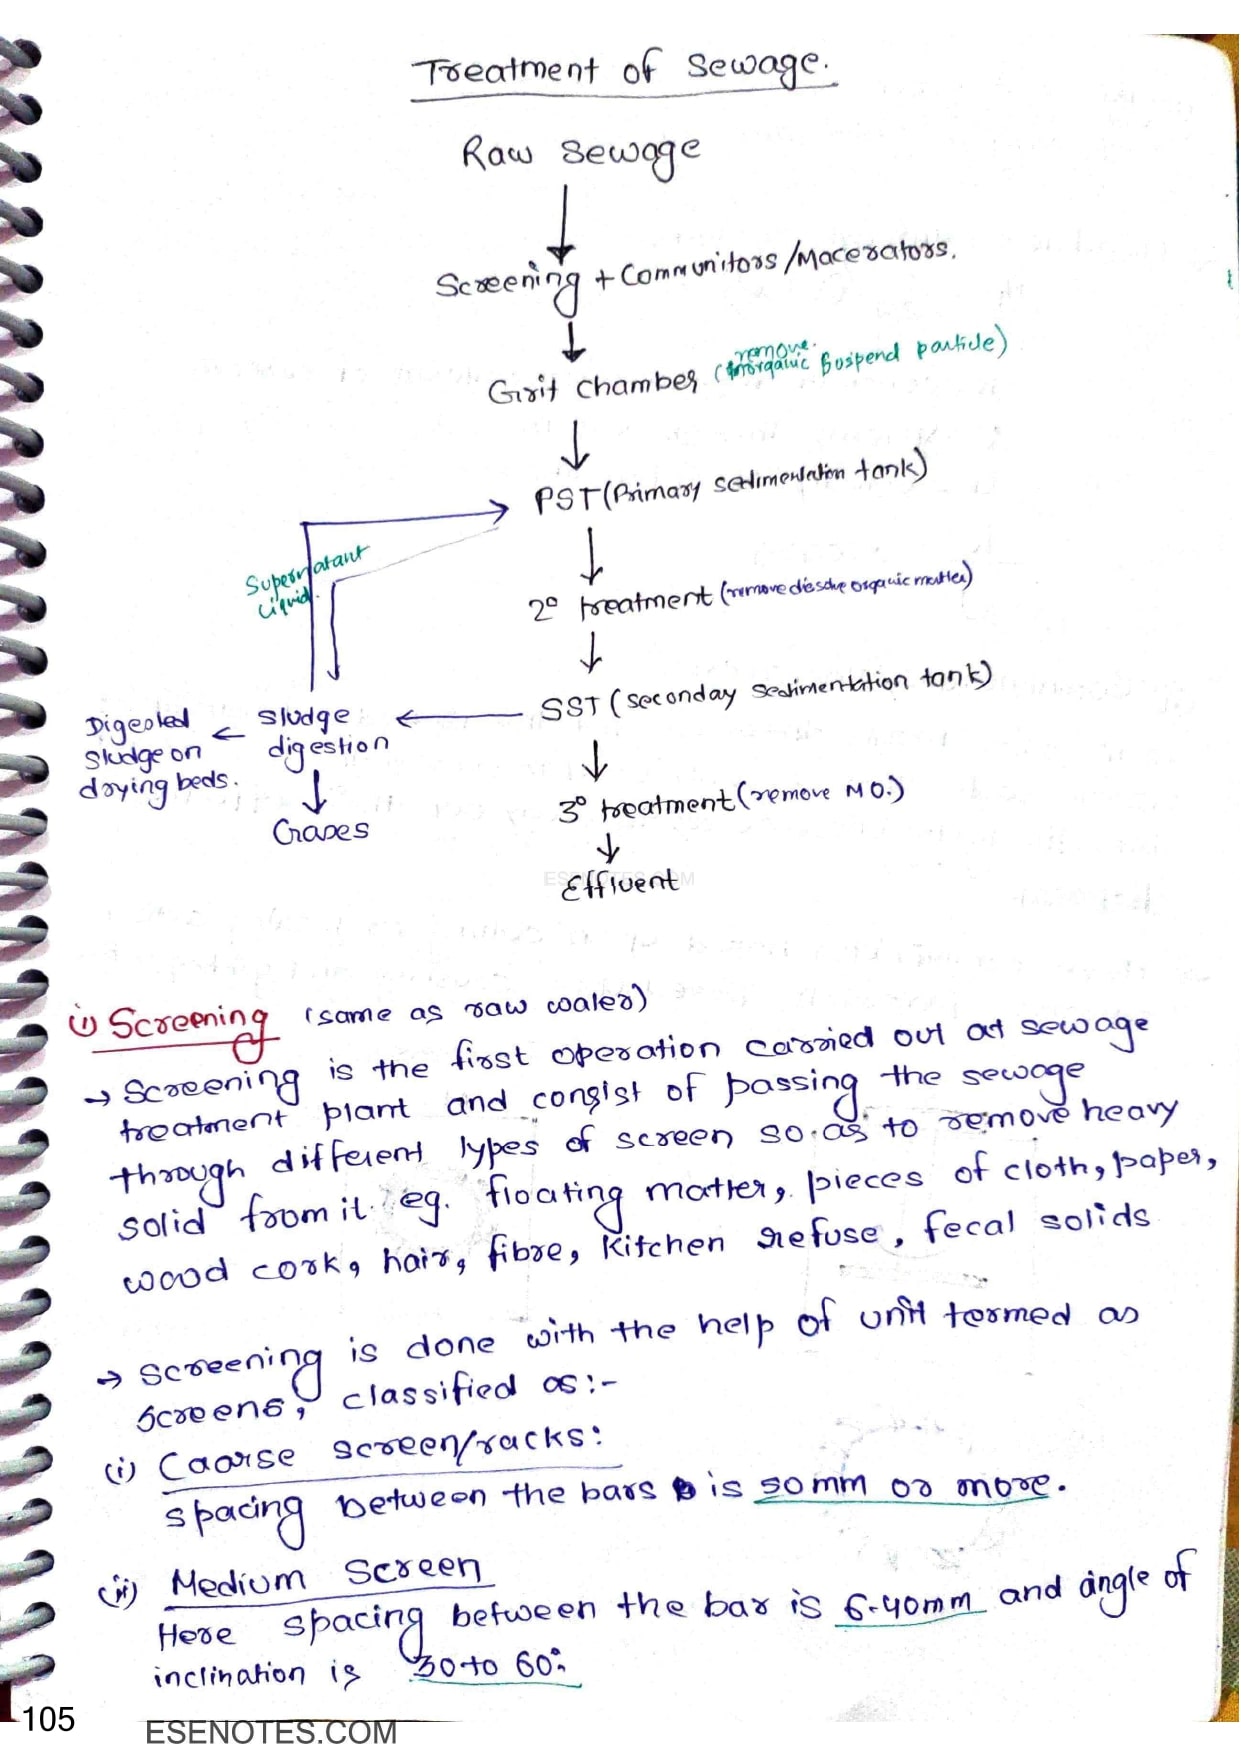 Treatment of Sewage.
Raw Sewage
Screening + Communitors/Macerators.
Grit chamber (remove inorganic suspend particle)
PST (Primary sedimentation tank)
Supernatant
Liquid.
2° treatment (remove dissolve organic matter)
SST (seconday sedimentation tank)
sludge
digestion
Digested
sludge on
drying beds.
Gases
3° treatment (remove M.O.)
Effluent
ESENOTES.COM
(i) Screening (same as raw water)
→ Screening is the first operation carried out at sewage
treatment plant and consist of passing the sewage
through different types of screen so as to remove heavy
solid from it. eg. floating matter, pieces of cloth, paper,
wood cork, hair, fibre, kitchen refuse, fecal solids
→ screening is done with the help of unit termed as
screens, classified as:-
(i) Caorse screen/racks:
spacing between the bars is 50 mm or more.
(ii) Medium Screen
Here spacing between the bar is 6-40mm and angle of
inclination is 30 to 60°.
105
ESENOTES.COM